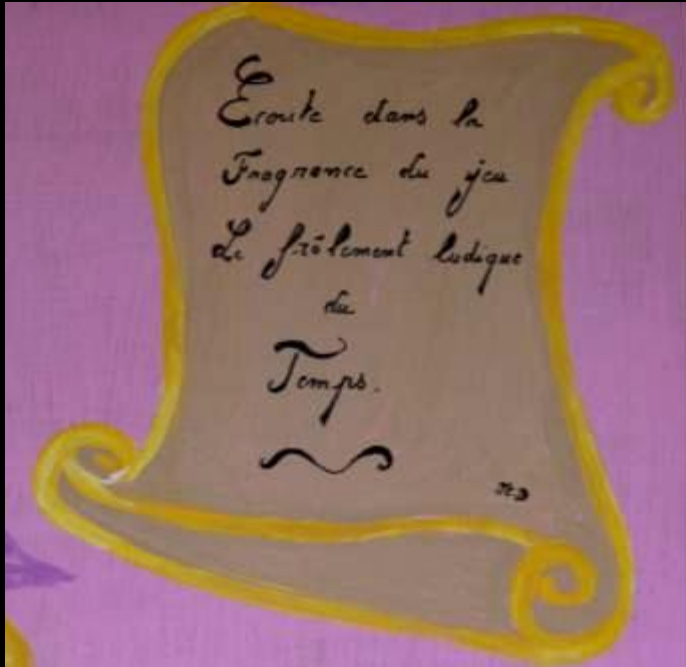 Ecoute dans la
Fragrance du jeu
Le frôlement ludique
du
Temps.